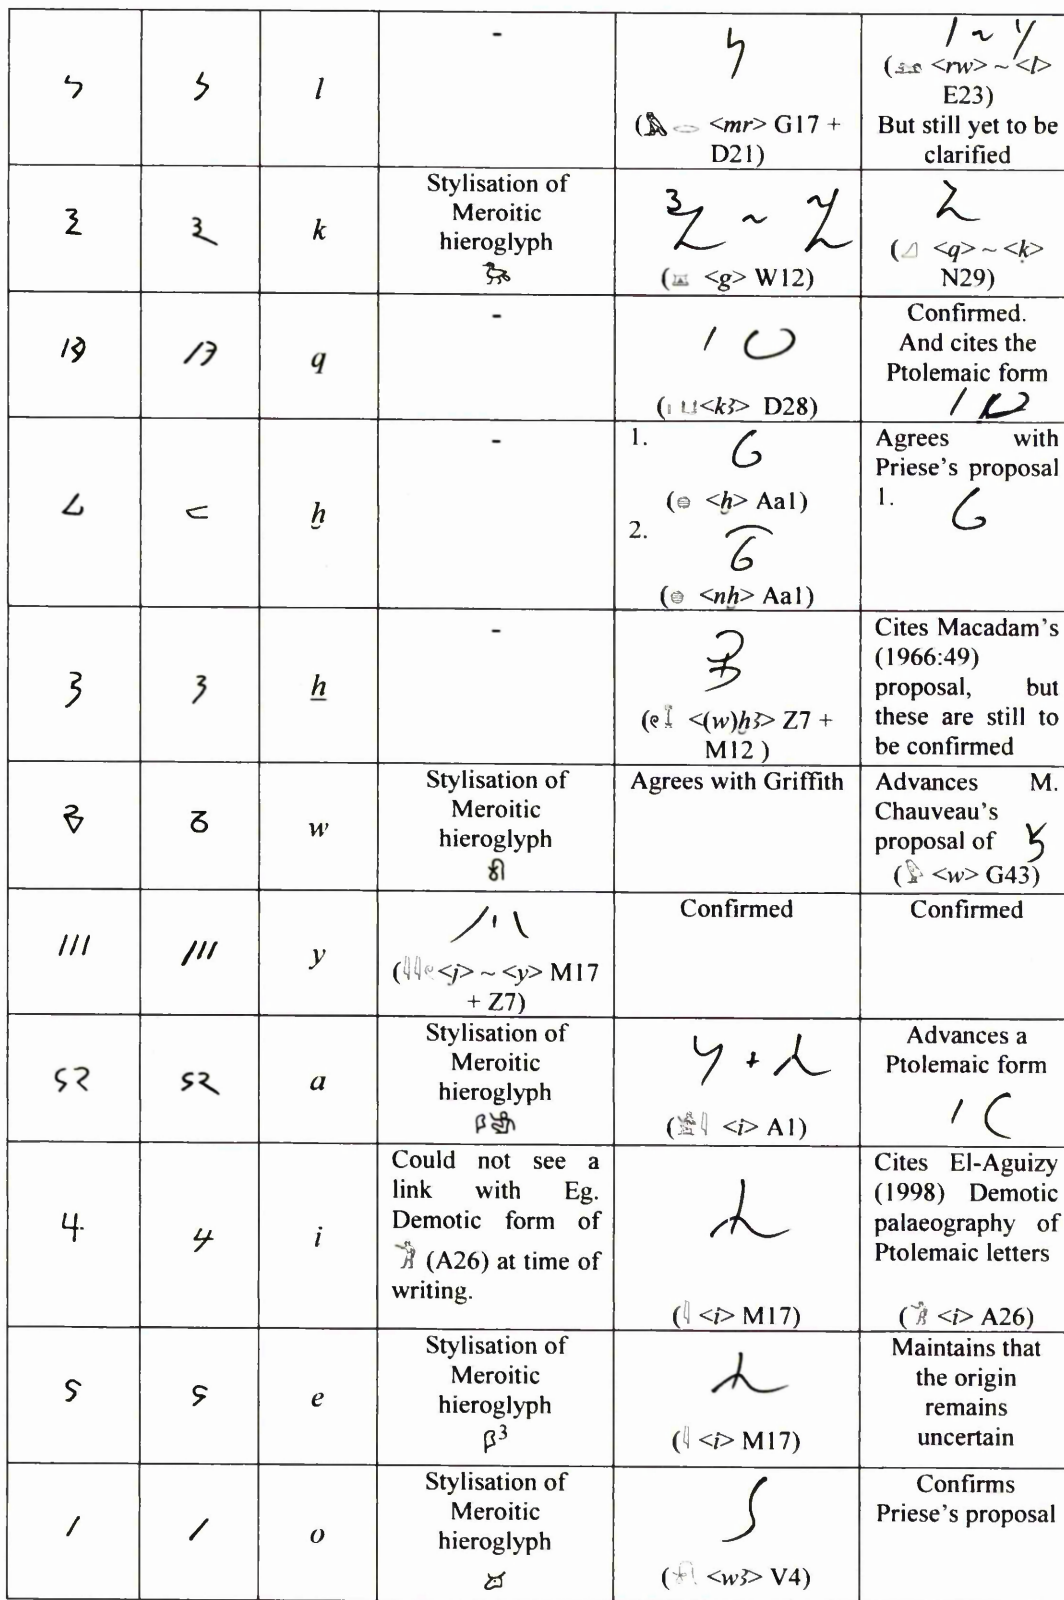 l
-
(<mr> G17 +
D21)
~
(<rw> ~ <l>
E23)
But still yet to be
clarified
k
Stylisation of
Meroitic
hieroglyph
~
(<g> W12)
(<q> ~ <ḳ>
N29)
q
-
(<kꜣ> D28)
Confirmed.
And cites the
Ptolemaic form
ḫ
-
1.
(<ḫ> Aa1)
2.
(<nḫ> Aa1)
Agrees with
Priese's proposal
1.
ẖ
-
(<(w)ḫꜣ> Z7 +
M12 )
Cites Macadam's
(1966:49)
proposal, but
these are still to
be confirmed
w
Stylisation of
Meroitic
hieroglyph
Agrees with Griffith
Advances M.
Chauveau's
proposal of
(<w> G43)
y
(<j> ~ <y> M17
+ Z7)
Confirmed
Confirmed
a
Stylisation of
Meroitic
hieroglyph
+
(<i> A1)
Advances a
Ptolemaic form
i
Could not see a
link with Eg.
Demotic form of
(A26) at time of
writing.
(<i> M17)
Cites El-Aguizy
(1998) Demotic
palaeography of
Ptolemaic letters
(<i> A26)
e
Stylisation of
Meroitic
hieroglyph
(<i> M17)
Maintains that
the origin
remains
uncertain
o
Stylisation of
Meroitic
hieroglyph
(<wꜣ> V4)
Confirms
Priese's proposal